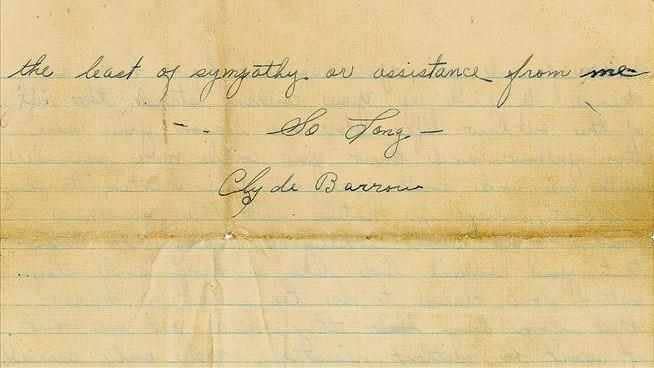 the least of sympathy. or assistance from me
— - So Long —
Clyde Barrow